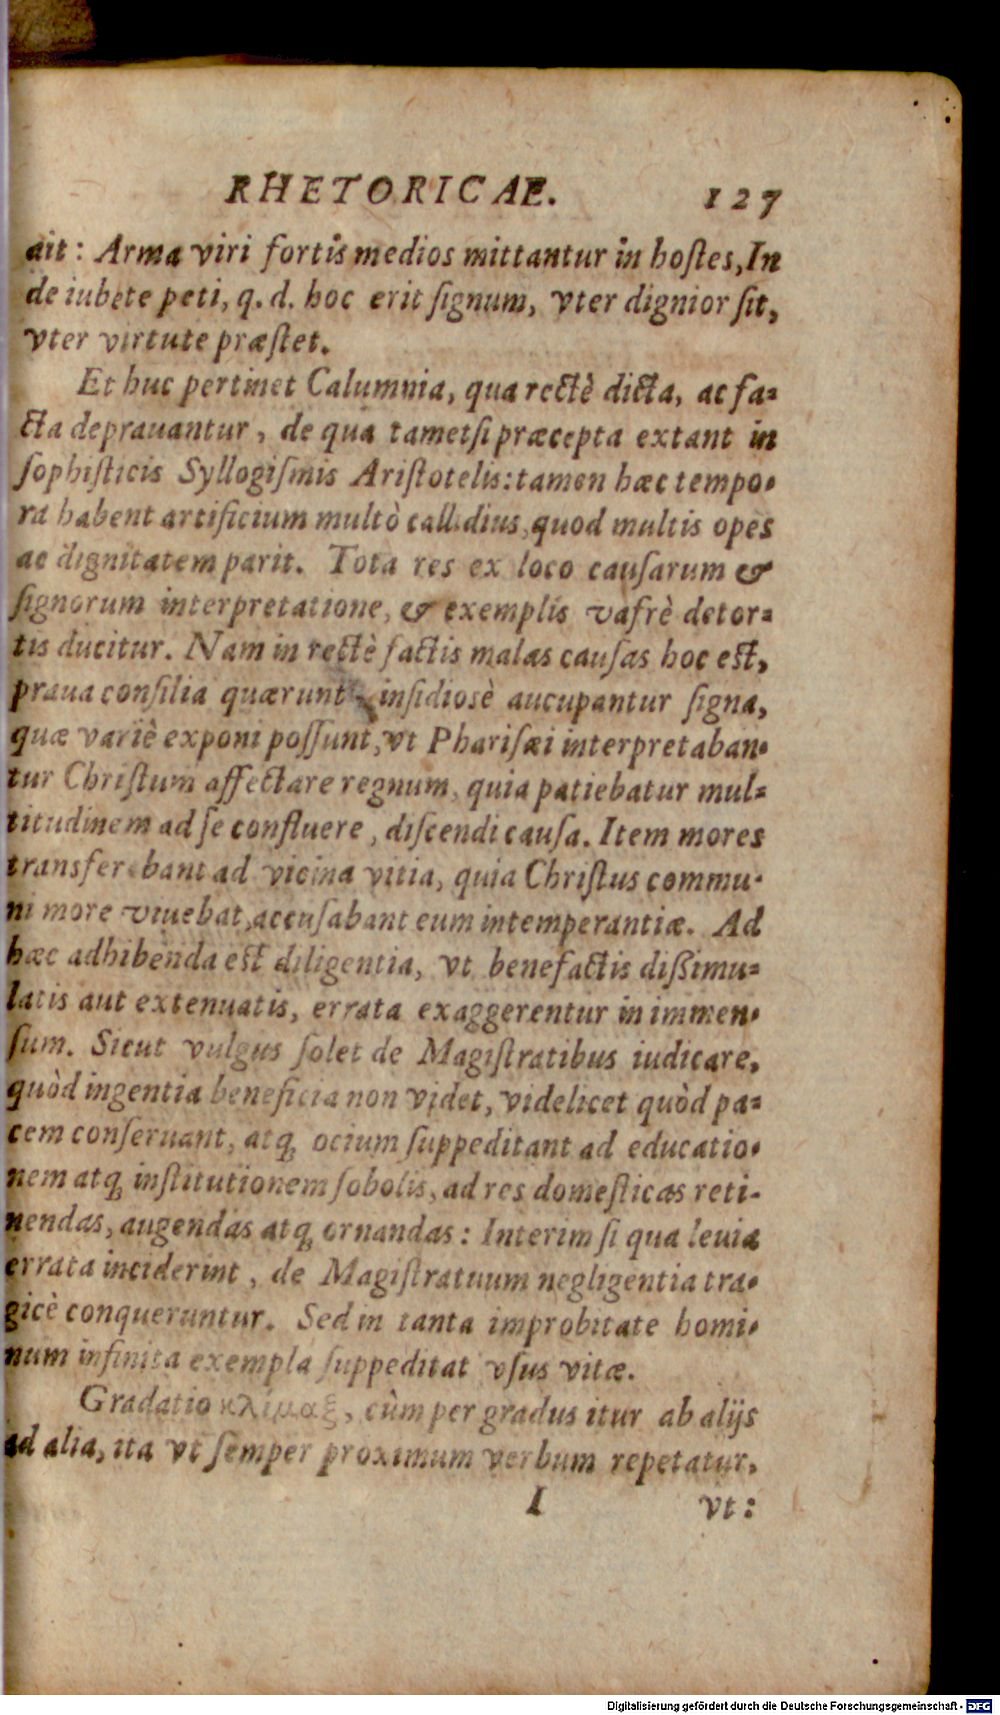 RHETORICAE. 127
ait: Arma viri fortis medios mittantur in hostes, In
de iubete peti, q. d. hoc erit signum, vter dignior sit,
vter virtute præstet.
Et huc pertinet Calumnia, qua rectè dicta, ac fa-
cta deprauantur, de qua tametsi præcepta extant in
sophisticis Syllogismis Aristotelis: tamen hæc tempo-
ra habent artificium multò callidius, quod multis opes
ac dignitatem parit. Tota res ex loco causarum &
signorum interpretatione, & exemplis vafrè detor-
tis ducitur. Nam in rectè factis malas causas hoc est,
praua consilia quærunt insidiosè aucupantur signa,
quæ variè exponi possunt, vt Pharisæi interpretaban-
tur Christum affectare regnum, quia patiebatur mul-
titudinem ad se confluere, discendi causa. Item mores
transferebant ad vicina vitia, quia Christus commu-
ni more viuebat, accusabant eum intemperantiæ. Ad
hæc adhibenda est diligentia, vt benefactis dissimu-
latis aut extenuatis, errata exaggerentur in immen-
sum. Sicut vulgus solet de Magistratibus iudicare,
quòd ingentia beneficia non videt, videlicet quòd pa-
cem conseruant, atq; ocium suppeditant ad educatio-
nem atq; institutionem sobolis, ad res domesticas reti-
nendas, augendas atq; ornandas: Interim si qua leuia
errata inciderint, de Magistratuum negligentia tra-
gicè conqueruntur. Sed in tanta improbitate homi-
num infinita exempla suppeditat vsus vitæ.
Gradatio κλίμαξ, cùm per gradus itur ab alijs
ad alia, ita vt semper proximum verbum repetatur,
I vt:
Digitalisierung gefördert durch die Deutsche Forschungsgemeinschaft - DFG